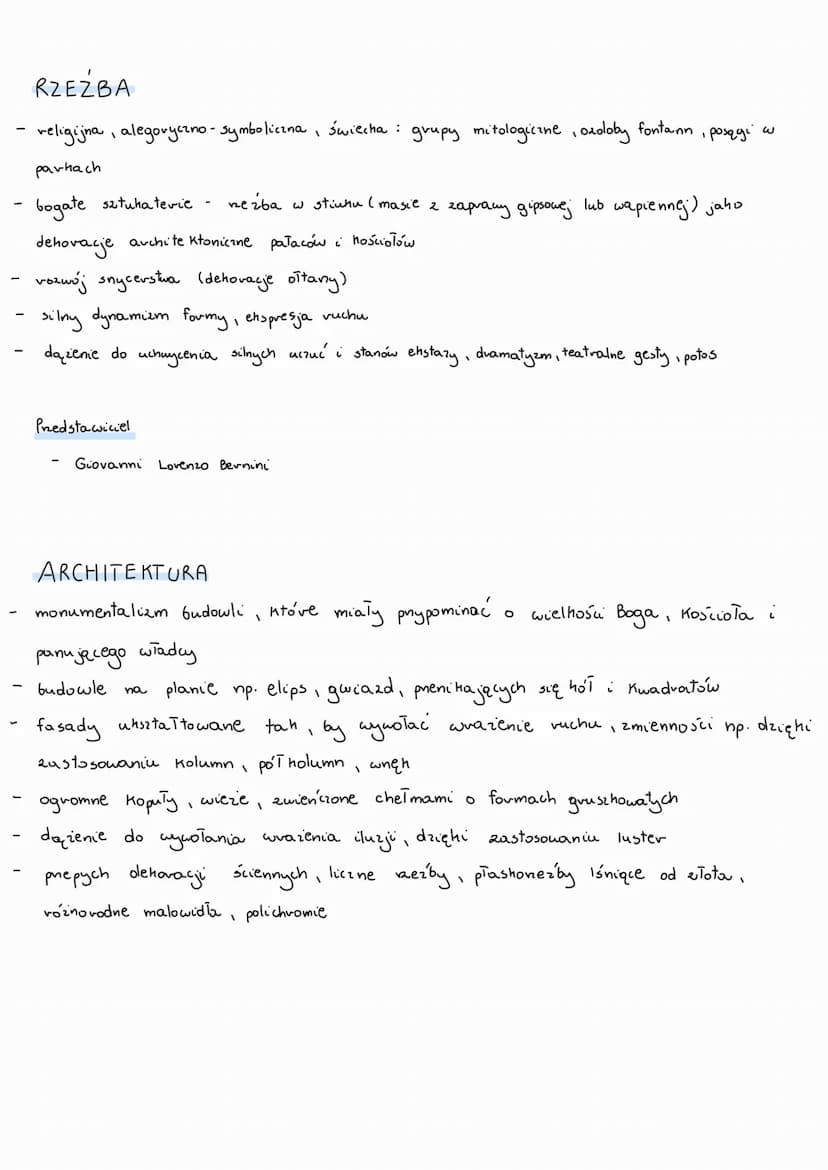 RZEŹBA
- religijna, alegoryczno-symboliczna, świecka: grupy mitologiczne, ozdoby fontann, posągi w
parkach
- bogate sztukaterie - rzeźba w stiuku (masie z zaprawy gipsowej lub wapiennej) jako
dekoracje architektoniczne pałaców i kościołów
- rozwój snycerstwa (dekoracje ołtarzy)
- silny dynamizm formy, ekspresja ruchu
- dążenie do uchwycenia silnych uczuć i stanów ekstazy, dramatyzm, teatralne gesty, patos
Przedstawiciel
- Giovanni Lorenzo Bernini
ARCHITEKTURA
- monumentalizm budowli, które miały przypominać o wielkości Boga, Kościoła i
panującego władcy
- budowle na planie np. elips, gwiazd, przenikających się kół i kwadratów
- fasady ukształtowane tak, by wywołać wrażenie ruchu, zmienności np. dzięki
zastosowaniu kolumn, półkolumn, wnęk
- ogromne kopuły, wieże, zwieńczone chełmami o formach gruszkowatych
- dążenie do wywołania wrażenia iluzji, dzięki zastosowaniu luster
- przepych dekoracji ściennych, liczne rzeźby, płaskorzeźby lśniące od złota,
różnorodne malowidła, polichromie